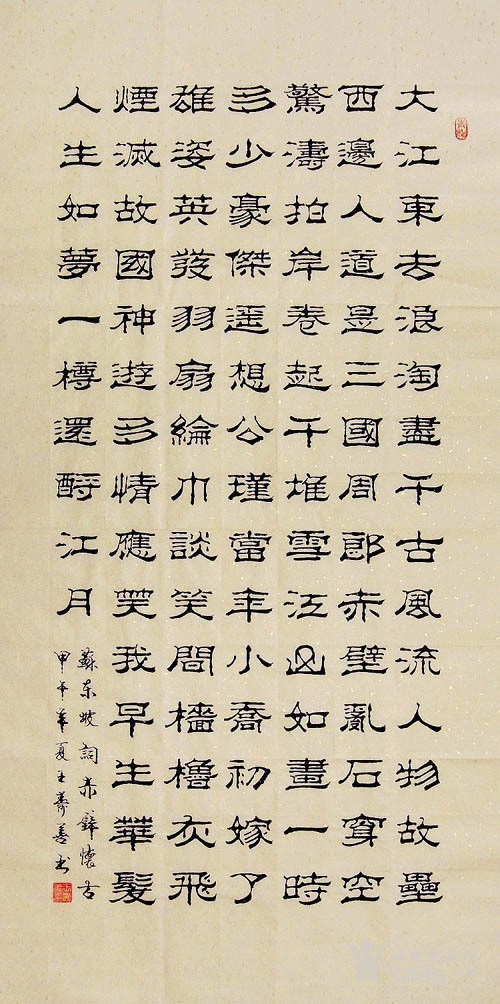 大江東去浪淘盡千古風流人物故壘
西邊人道是三國周郎赤壁亂石穿空
驚濤拍岸卷起千堆雪江山如畫一時
多少豪傑遥想公瑾當年小喬初嫁了
雄姿英發羽扇綸巾談笑間檣櫓灰飛
煙滅故國神遊多情應笑我早生華髮
人生如夢一樽還酹江月
蘇东坡詞赤壁懷古
甲午年夏王善书